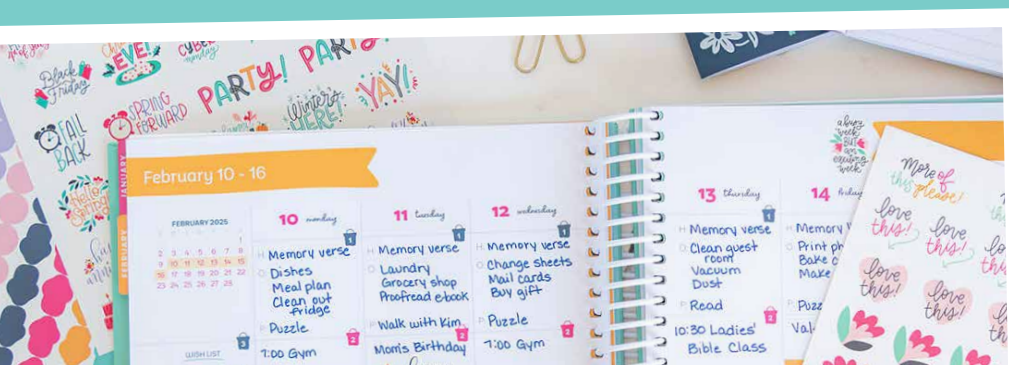 Black
Friday
EVE!
CYBER
monday
PARTY!
PARTY!
SPRING
FORWARD
FALL
BACK
Winter's
HERE!
YAY!
hello
Spring
JANUARY
FEBRUARY
February 10 - 16
FEBRUARY 2025
1
2 3 4 5 6 7 8
9 10 11 12 13 14 15
16 17 18 19 20 21 22
23 24 25 26 27 28
WISH LIST
10 monday
1
H Memory verse
O Dishes
Meal plan
Clean out
fridge
P Puzzle
2
3
7:00 Gym
11 tuesday
1
H Memory verse
O Laundry
Grocery shop
Proofread ebook
P Walk with Kim
2
Mom's Birthday
12 wednesday
1
H Memory verse
O Change sheets
Mail cards
Buy gift
P Puzzle
2
7:00 Gym
a busy
week
BUT
an
exciting
week
13 thursday
1
H Memory verse
O Clean guest
room
Vacuum
Dust
P Read
2
10:30 Ladies'
Bible Class
14 friday
H Memory
O Print
Bake
Make
P
More of
this please!
love
this!
love
this!
love
this!
love
this!